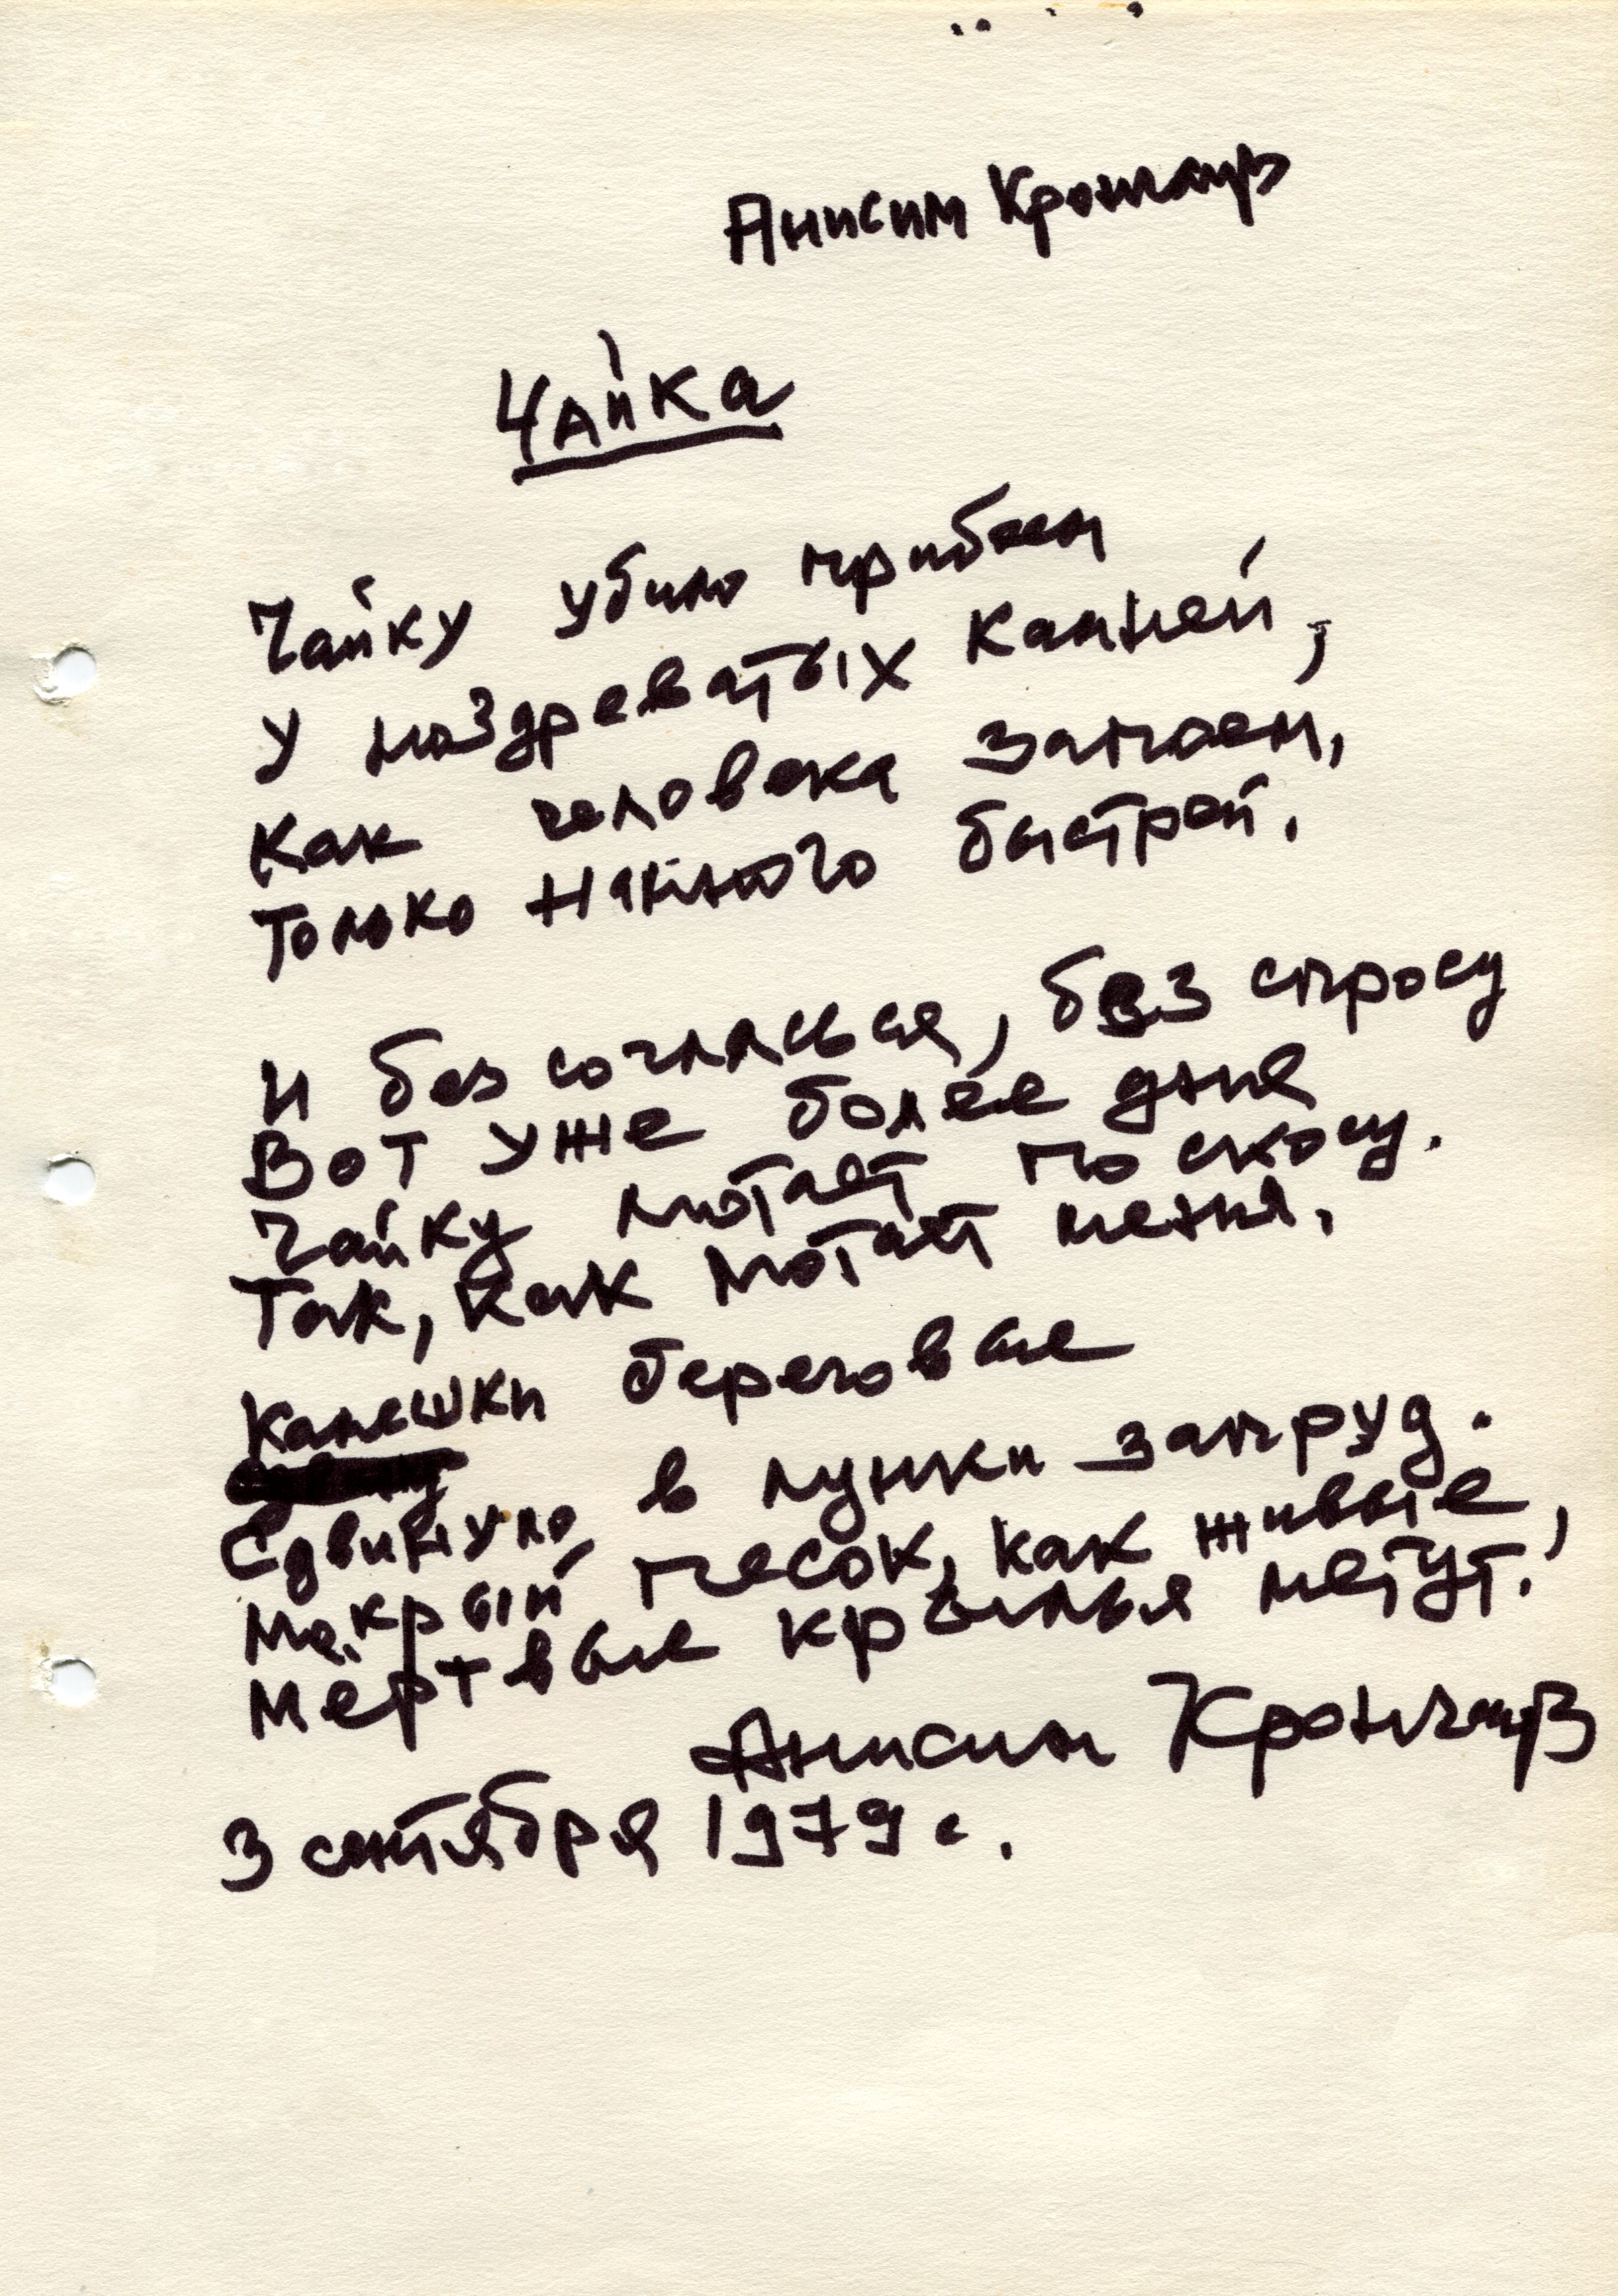 Анисим Кронгауз
Чайка
Чайку убило прибоем
У ноздреватых камней,
Как человека запоем,
Только намного быстрей.
И без согласья, без спросу
Вот уже более дня
Чайку мотает по скосу.
Так, как мотает меня.
Камешки береговые
Сдвинуло в лунки запруд.
Мокрый песок, как живые,
Мёртвые крылья метут.
Анисим Кронгауз
3 сентября 1979 г.